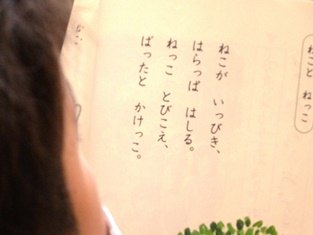 ねこと ねっこ
ねこが いっぴき、
はらっぱ はしる。
ねっこ とびこえ、
ばったと かけっこ。